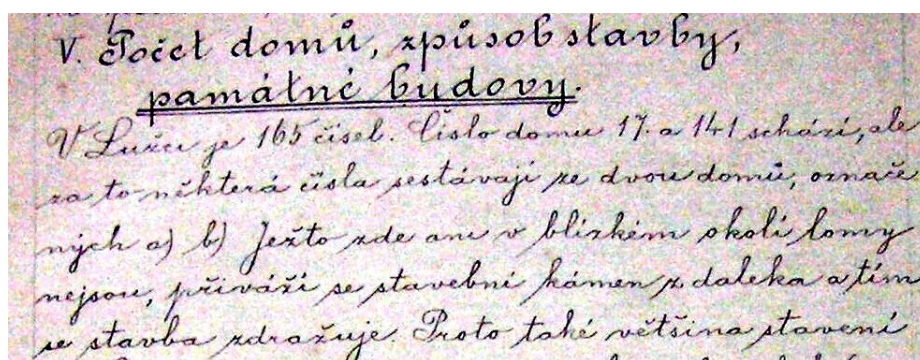 V. Počet domů, způsob stavby,
památné budovy.
V Lužci je 165 čísel. Číslo domu 17. a 141 schází, ale
za to některá čísla sestávají ze dvou domů, označe
ných a) b) Ježto zde ani v blízkém okolí lomy
nejsou, přiváží se stavební kámen z daleka a tím
se stavba zdražuje. Proto také většina stavení